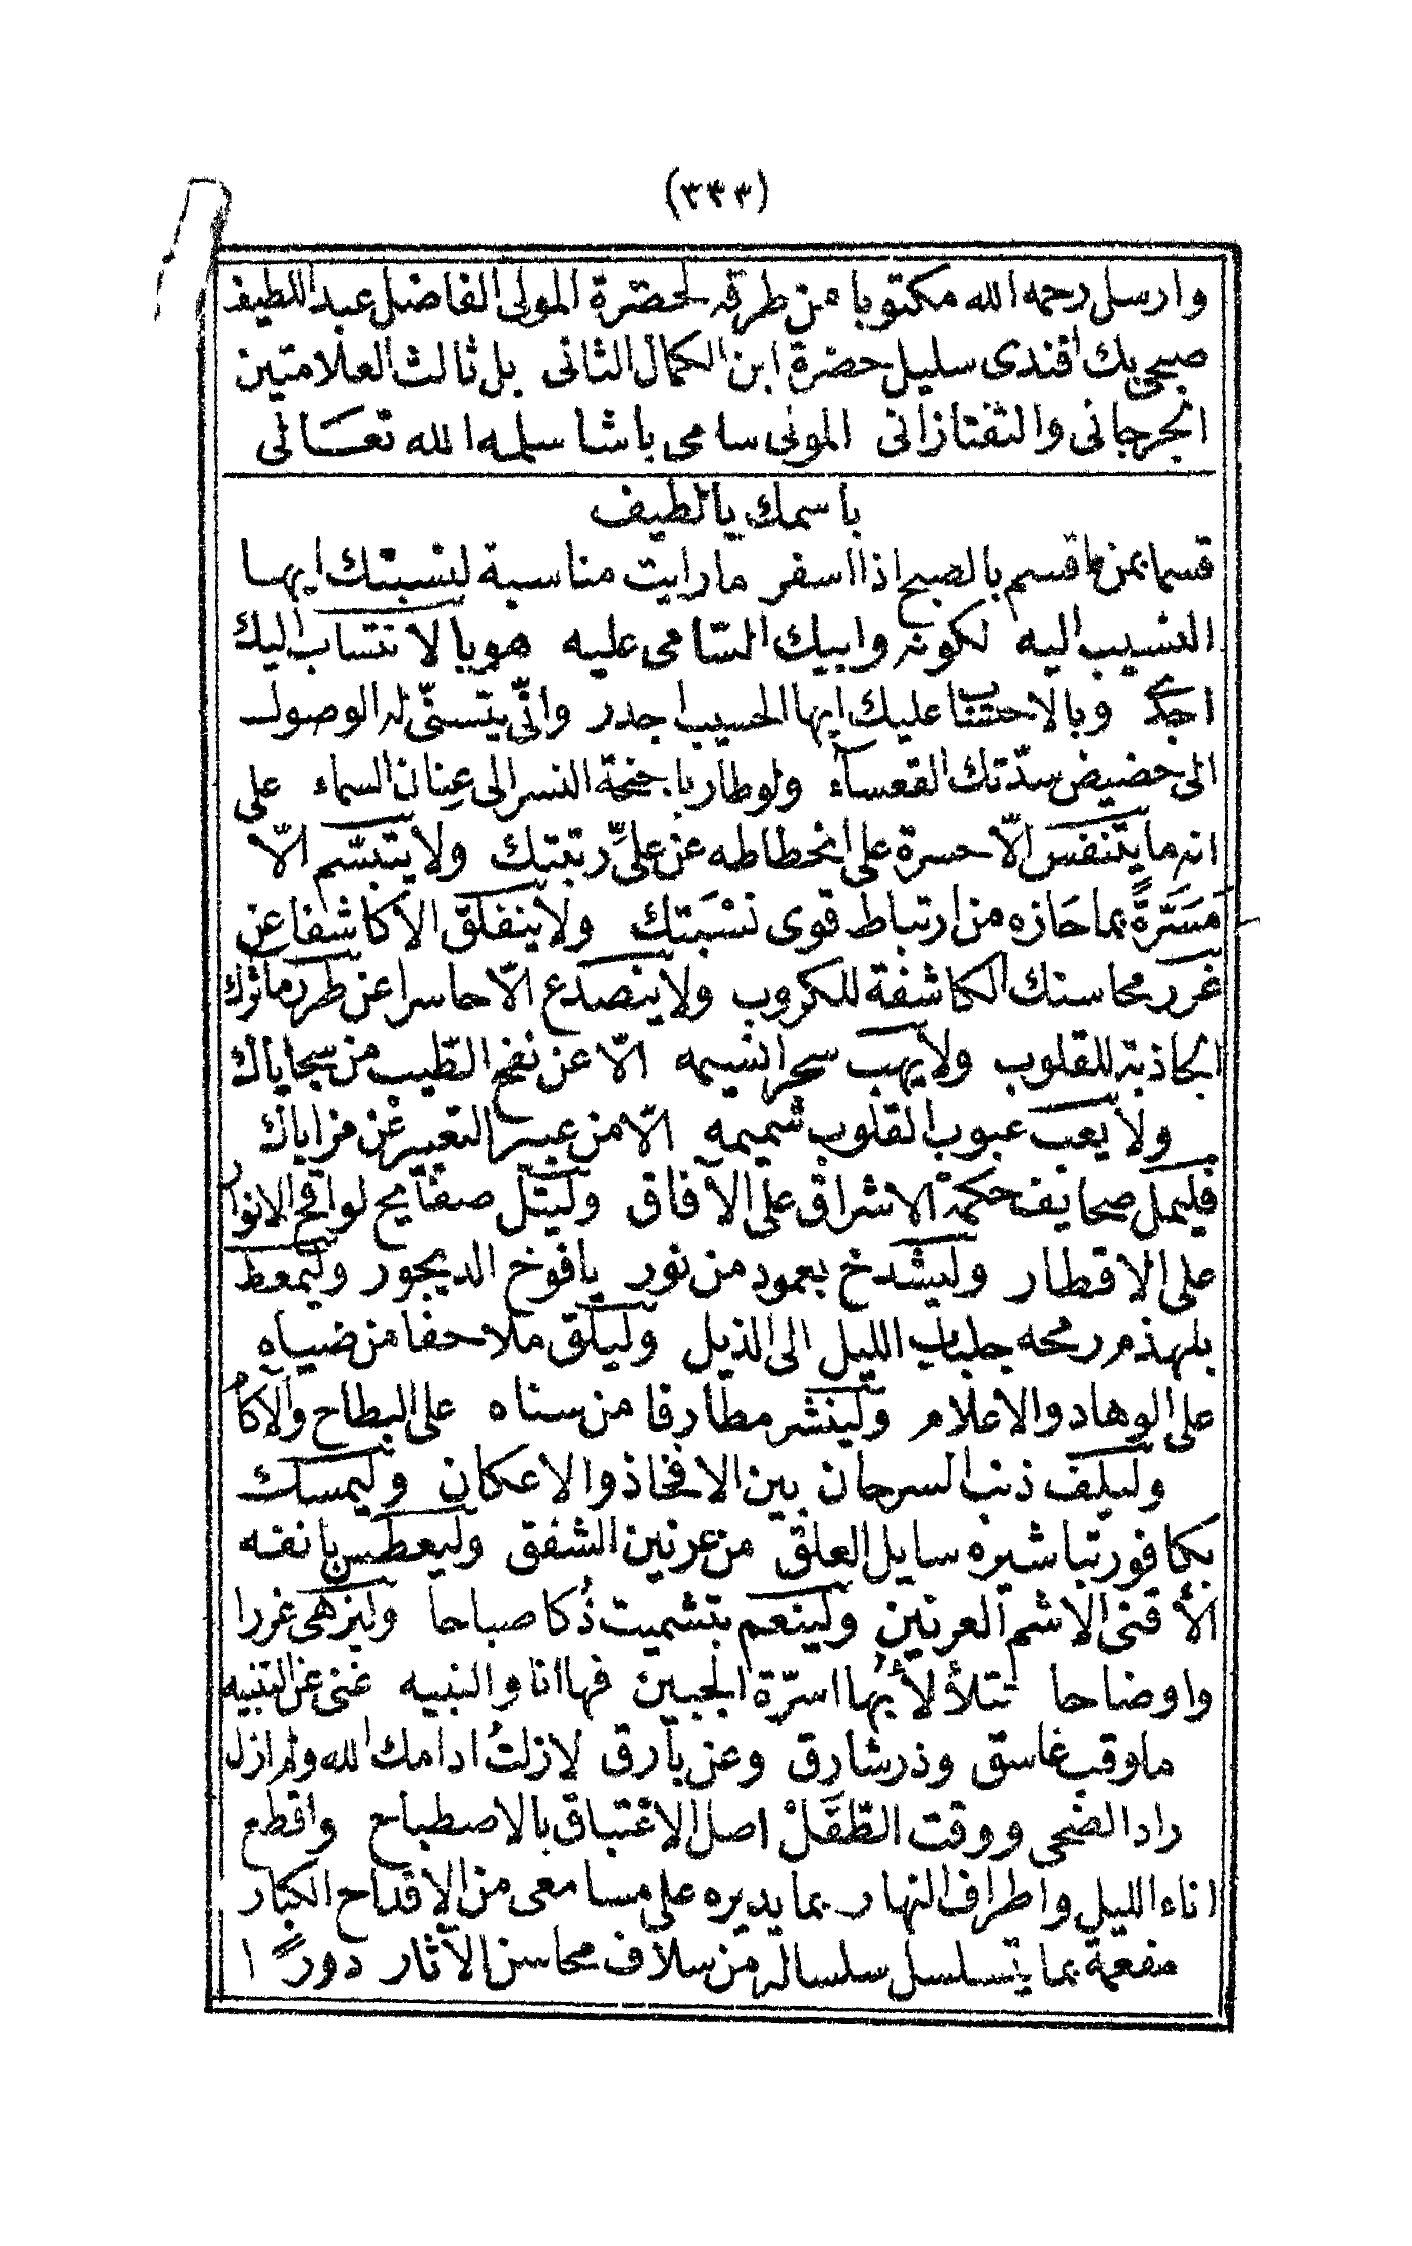 (٣٣٣)
وارسل رحمه الله مكتوبا من طرفه لحضرة المولى الفاضل عبد اللطيف
صبحى بك افندى سليل حضرة ابن الكمال الثانى بل ثالث العلامتين
الجرجانى والتفتازانى المولى سامى باشا سلمه الله تعالى
باسمك يا لطيف
قسما بمن اقسم بالصبح اذا اسفر ما رايت مناسبة لنسبتك ايها
النسيب اليه لكونه وابيك السّامى عليه هو بالانتساب اليك
اجدر وبالاحتساب عليك ايها الحسيب اجدر وانّى يتسنّى له الوصول
الى حضيض سدّتك القعساء ولو طار باجنحة النسر الى عِنان السماء على
انه ما يتنفس الّا حسرة على انحطاطه عن علىِّ رتبتك ولا يتبسّم الّا
مَسَرّةً بما حَازه من ارتباط قوى نسْبَتك ولا ينفلق الا كاشفا عن
غرر محاسنك الكاشفة للكروب ولا ينصدع الّا حاسرا عن طرر ماثرك
الجاذبة للقلوب ولا يهب سحرا نسيمه الّا عن نفح الطّيب من سجاياك
ولا يعب عبوب القلوب شميمه الّا من عبير التعبير عن مزاياك
فليمل صحايف حكمة الاشراق على الآفاق وليتل صفايح لوافح الانوار
على الاقطار وليشدخ بعمود من نور يافوخ الديجور وليمعط
بلهذم رمحه جلباب الليل الى الذيل وليلق ملاحفا من ضياه
على الوهاد والاعلام ولينشر مطارفا من سناه على البطاح والآكام
وليلف ذنب السرحان بين الافخاذ والاعكان وليمسك
بكافور تباشيره سايل العلق من عرنين الشفق وليعطس بانفه
الأقنى الاشم العرنين ولينعم بتشميت ذُكا صباحا وليزهى غررا
واوضاحا تتلألأ بُها اسرّة الجبين فها انا والنبيه غنى عن التنبيه
ما وقب غاسق وذر شارق وعن بارق لازلتُ ادامك الله ولم ازل
راد الضحى ووقت الطّفَلْ اصل الاغتباق بالاصطباح واقطع
اناء الليل واطراف النهار بما يديره على مسامعى من الاقداح الكبار
مفعمة بما يتسلسل سلساله من سلاف محاسن الآثار دورًا